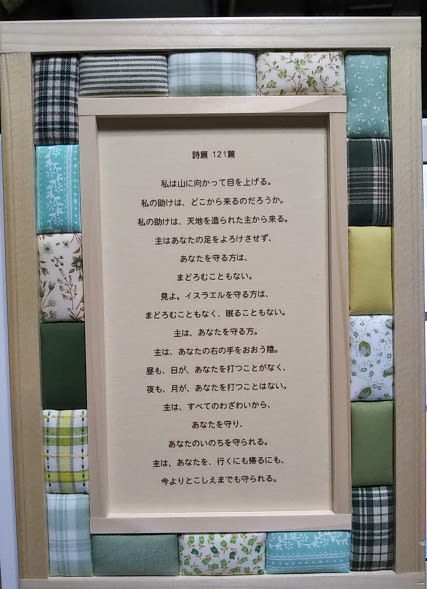 詩篇 121篇
私は山に向かって目を上げる。
私の助けは、どこから来るのだろうか。
私の助けは、天地を造られた主から来る。
主はあなたの足をよろけさせず、
あなたを守る方は、
まどろむこともない。
見よ。イスラエルを守る方は、
まどろむこともなく、眠ることもない。
主は、あなたを守る方。
主は、あなたの右の手をおおう陰。
昼も、日が、あなたを打つことがなく、
夜も、月が、あなたを打つことはない。
主は、すべてのわざわいから、
あなたを守り、
あなたのいのちを守られる。
主は、あなたを、行くにも帰るにも、
今よりとこしえまでも守られる。